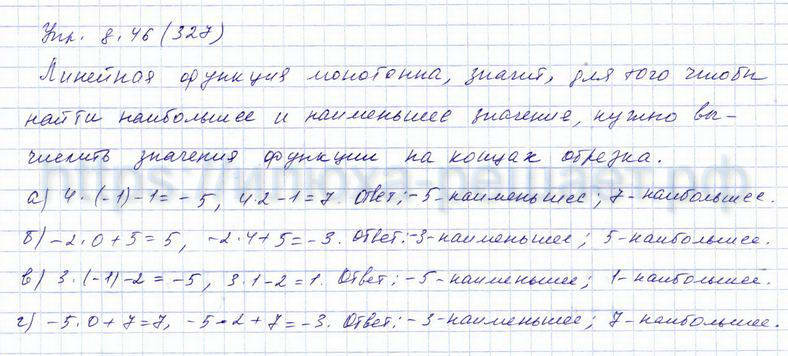 Упр. 8.46 (327)
Линейная функция монотонна, значит, для того чтобы
найти наибольшее и наименьшее значение, нужно вы-
числить значения функции на концах отрезка.
а) 4·(-1)-1=-5, 4·2-1=7. Ответ: -5-наименьшее; 7-наибольшее.
б) -2·0+5=5, -2·4+5=-3. Ответ: -3-наименьшее; 5-наибольшее.
в) 3·(-1)-2=-5, 3·1-2=1. Ответ: -5-наименьшее; 1-наибольшее.
г) -5·0+7=7, -5·2+7=-3. Ответ: -3-наименьшее; 7-наибольшее.